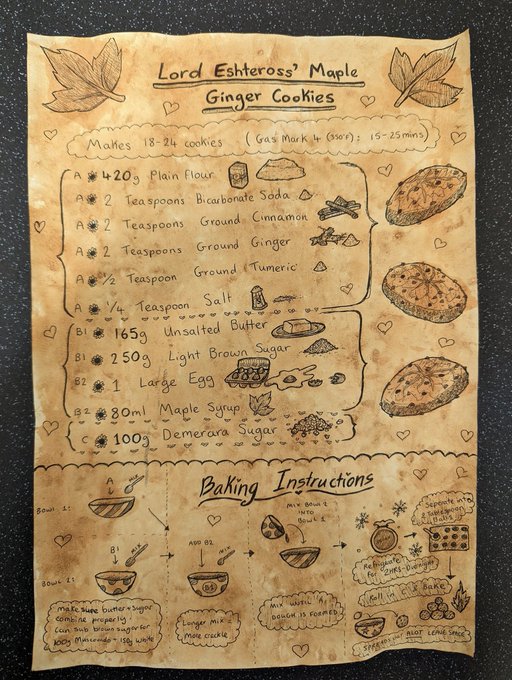 Lord Eshteross' Maple
Ginger Cookies
Makes 18-24 cookies (Gas Mark 4 (350°F): 15-25mins)
A 420g Plain Flour
A 2 Teaspoons Bicarbonate Soda
A 2 Teaspoons Ground Cinnamon
A 2 Teaspoons Ground Ginger
A ½ Teaspoon Ground Tumeric
A ¼ Teaspoon Salt
B1 165g Unsalted Butter
B1 250g Light Brown Sugar
B2 1 Large Egg
B2 80ml Maple Syrup
C 100g Demerara Sugar
Baking Instructions
BOWL 1:
A
MIX
MIX BOWL 2
INTO
BOWL 1
Seperate into
2 Tablespoon
Balls
Refrigerate
for 2HRS-Overnight
BOWL 2:
B1
MIX
ADD B2
MIX
B1
Make sure butter + sugar
combine properly.
Can sub brown sugar for
100g Muscovado + 150g White
Longer Mix =
more crackle
MIX UNTIL A
DOUGH IS FORMED
Roll in C & Bake
SPREADS out ALOT LEAVE SPACE